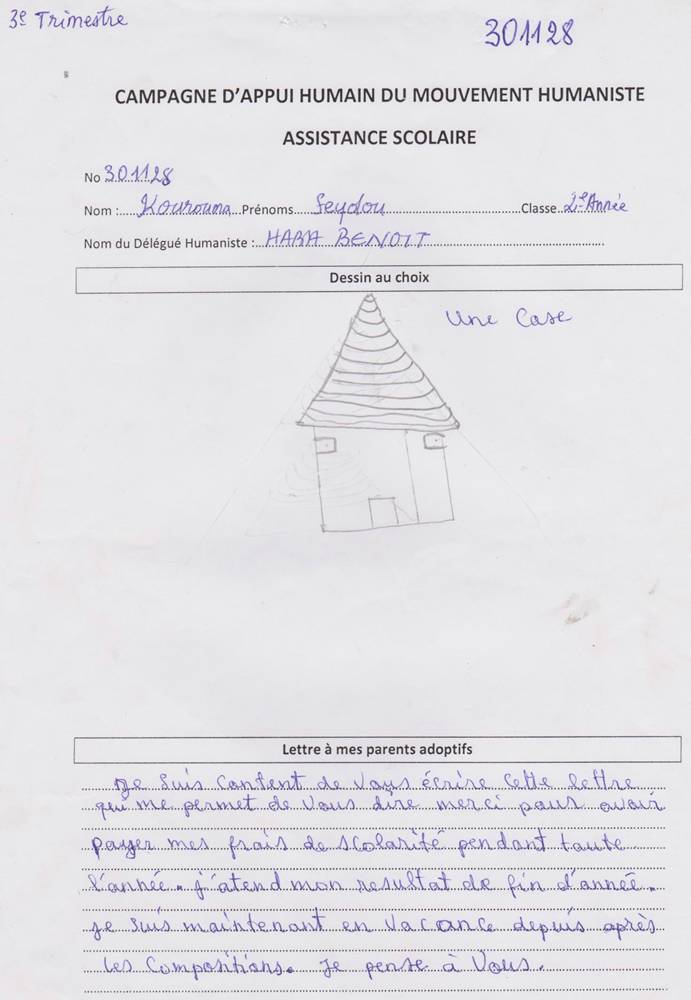 3e Trimestre
301128
CAMPAGNE D'APPUI HUMAIN DU MOUVEMENT HUMANISTE
ASSISTANCE SCOLAIRE
No 301128
Nom : Kourouma Prénoms Seydou Classe 2e Année
Nom du Délégué Humaniste : HABA BENOIT
Dessin au choix
Une Case
Lettre à mes parents adoptifs
Je suis content de vous écrire cette lettre
qui me permet de vous dire merci pour avoir
payer mes frais de scolarité pendant toute
l'année. j'atend mon resultat de fin d'année.
je suis maintenant en vacance depuis après
les compositions. Je pense à vous.